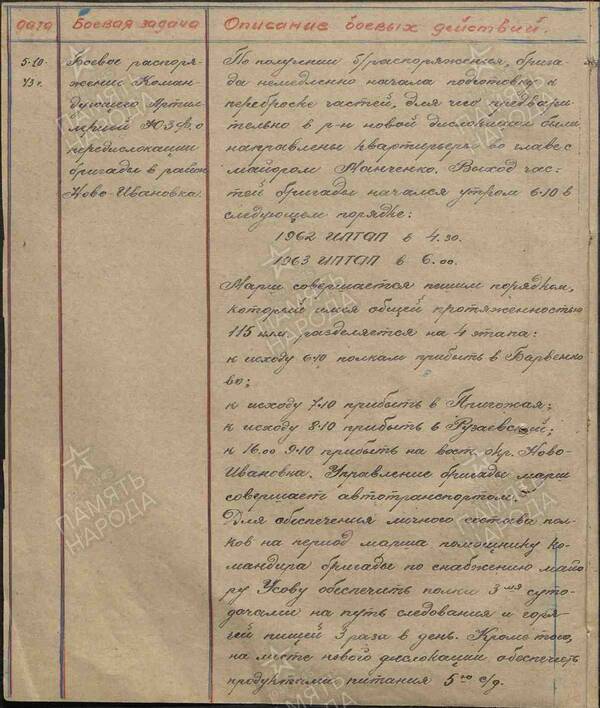 Дата Боевая задача Описание боевых действий.
5-10
43 г.
Боевое распоря-
жение Коман-
дующего Артил-
лерией ЮЗФ, о
передислокации
бригады в район
Ново-Ивановка.
По получении б/распоряжения, брига-
да немедленно начала подготовку к
переброске частей, для чего предвари-
тельно в р-н новой дислокации были
направлены квартирьеры во главе с
майором Манченко. Выход час-
тей бригады начался утром 6-10 в
следующем порядке:
1962 ИПТАП в 4.30.
1963 ИПТАП в 6.00.
Марш совершается пешим порядком,
который имея общей протяженностью
115 км разделяется на 4 этапа:
к исходу 6-10 полкам прибыть в Барвенко
во;
к исходу 7-10 прибыть в Пригожая;
к исходу 8-10 прибыть в Рузаевский;
к 16.00 9-10 прибыть на вост. окр. Ново-
Ивановка. Управление бригады марш
совершает автотранспортом.
Для обеспеченья личного состава пол-
ков на период марша помощнику ко-
мандира бригады по снабжению майо
ру Усову обеспечить полки 3мя суто-
дачами на путь следования и горя-
чей пищей 3 раза в день. Кроме того,
на месте нового дислокации обеспечить
продуктами питания 5ю с/д.
ПАМЯТЬ
НАРОДА
ПАМЯТЬ
НАРОДА
ПАМЯТЬ
НАРОДА
ПАМЯТЬ
НАРОДА
ПАМЯТЬ
НАРОДА